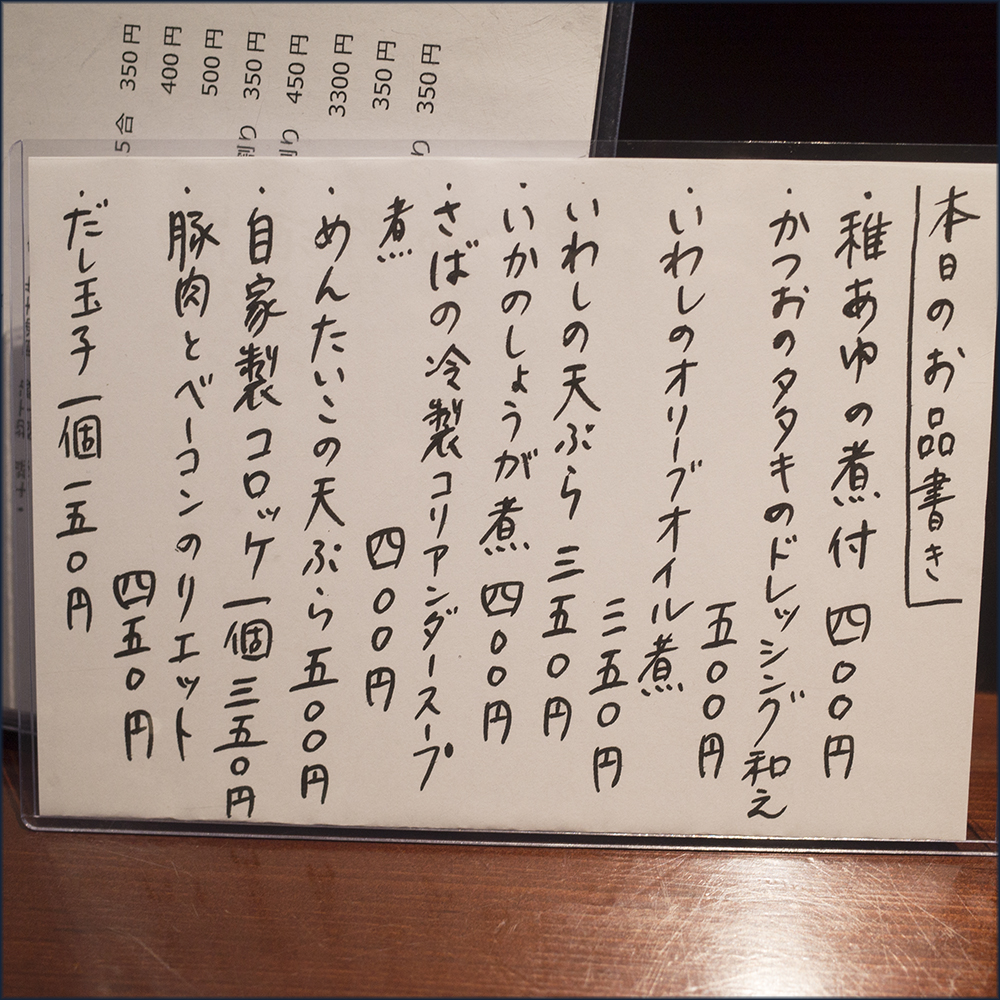 本日のお品書き
・稚あゆの煮付 四〇〇円
・かつおのタタキのドレッシング和え
五〇〇円
・いわしのオリーブオイル煮
三五〇円
いわしの天ぷら 三五〇円
・いかのしょうが煮 四〇〇円
・さばの冷製コリアンダースープ
煮 四〇〇円
・めんたいこの天ぷら 五〇〇円
・自家製コロッケ 一個 三五〇円
・豚肉とベーコンのリエット
四五〇円
・だし玉子 一個 一五〇円
5合 350円
400円
500円
割り 350円
割り 450円
3300円
350円
り 350円